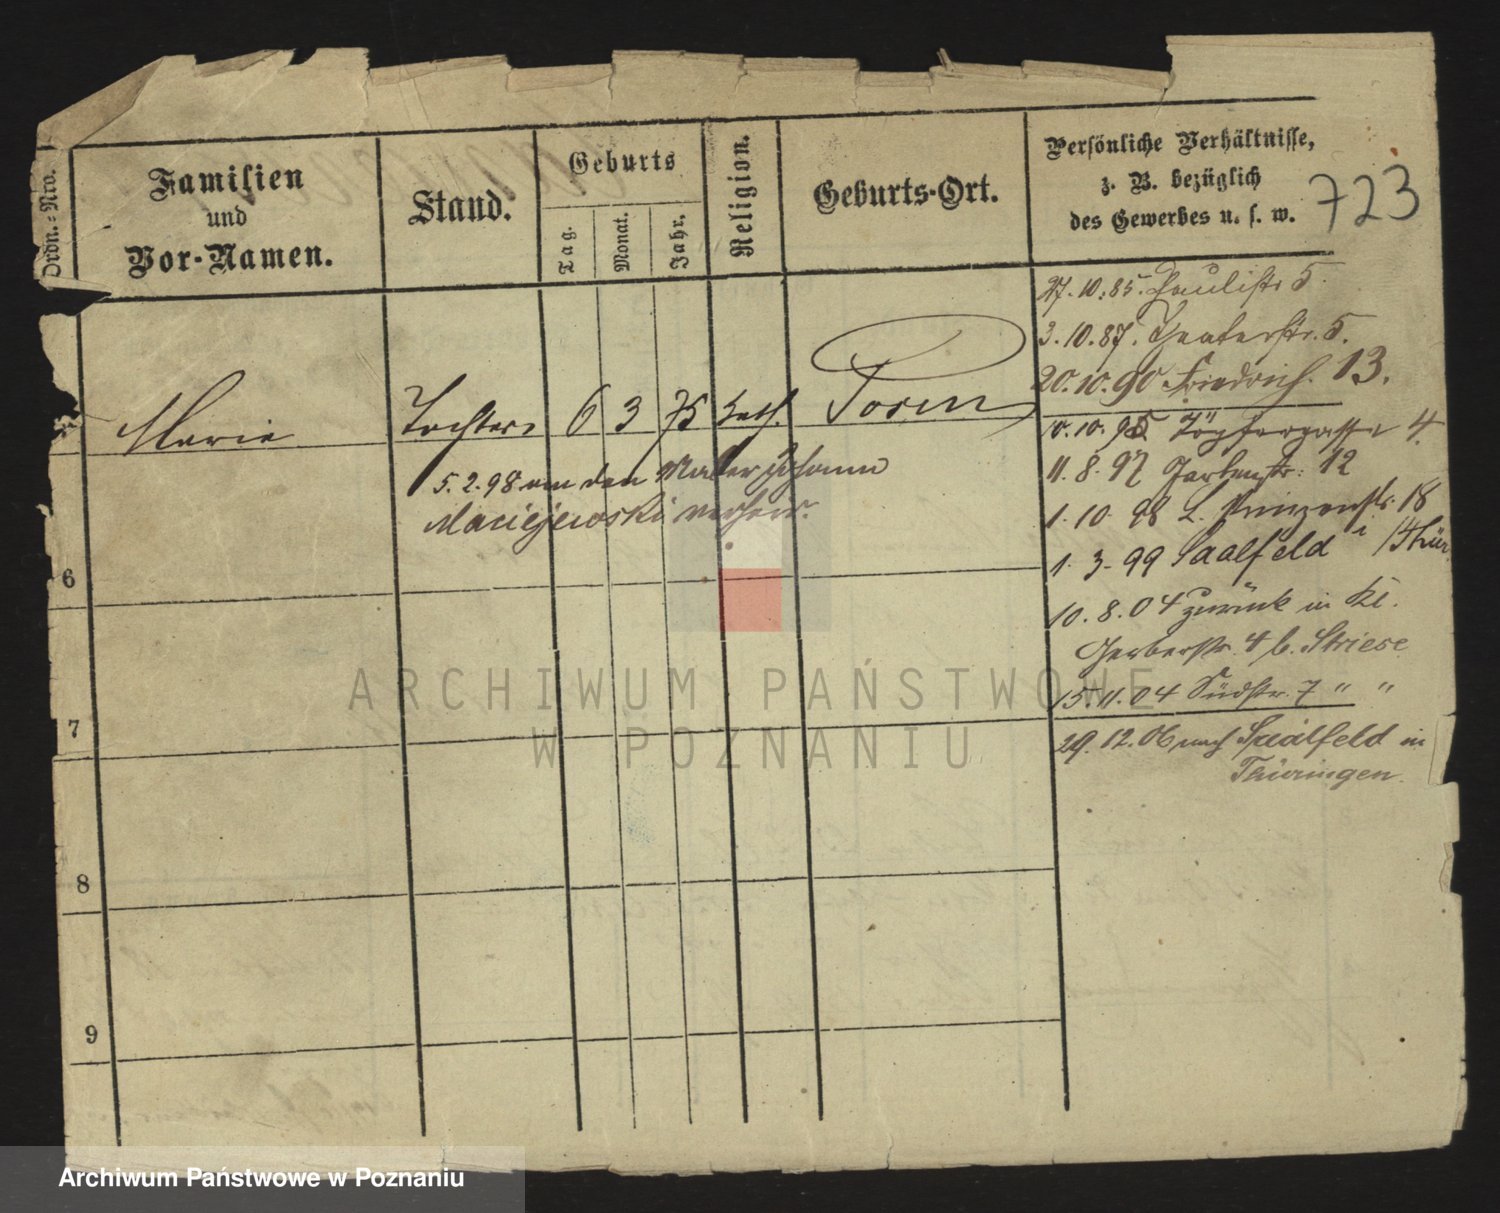 Ordn.=Nro.
Familien
und
Vor-Namen.
Stand.
Geburts
Tag.
Monat.
Jahr.
Religion.
Geburts-Ort.
Persönliche Verhältnisse,
z. B. bezüglich
des Gewerbes u. s. w.
723
27.10.85. Paulistr 5.
3.10.87. Theaterstr. 5.
20.10.90 Friedrich. 13.
Marie Tochter 6 3 75 kath. Posen
10.10.95 Töpfergasse 4.
5.2.98 an den Maler Johann
Maciejewski verheir.
11.8.97 Gartenstr. 12
1.10.98 L. Prinzenstr. 18
1.3.99 Saalfeld i /Thür
6
10.8.04 zurück in Kl.
Gerberstr. 4 b. Striese
15.11.04 Südstr. 7 " "
7
29.12.06 nach Saalfeld in
Thüringen.
8
9
ARCHIWUM PAŃSTWOWE
W POZNANIU
Archiwum Państwowe w Poznaniu